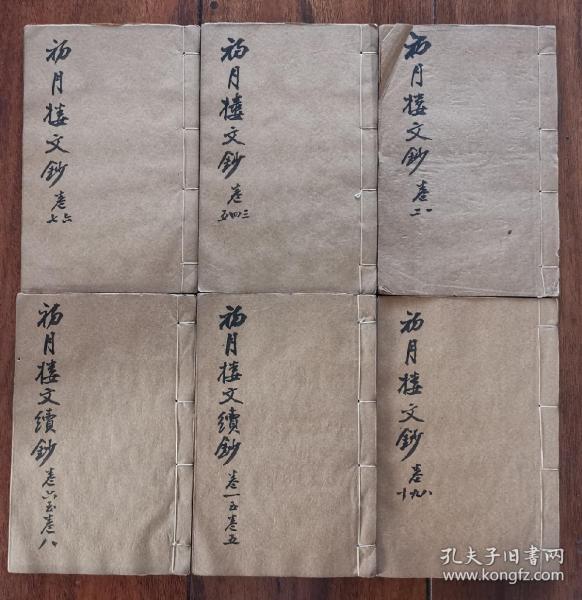 初月樓文鈔 卷一二
初月樓文鈔 卷三四五
初月樓文鈔 卷六七
初月樓文鈔 卷八九十
初月樓文續鈔 卷一至卷五
初月樓文續鈔 卷六至卷八
孔夫子旧书网
www.kongfz.com